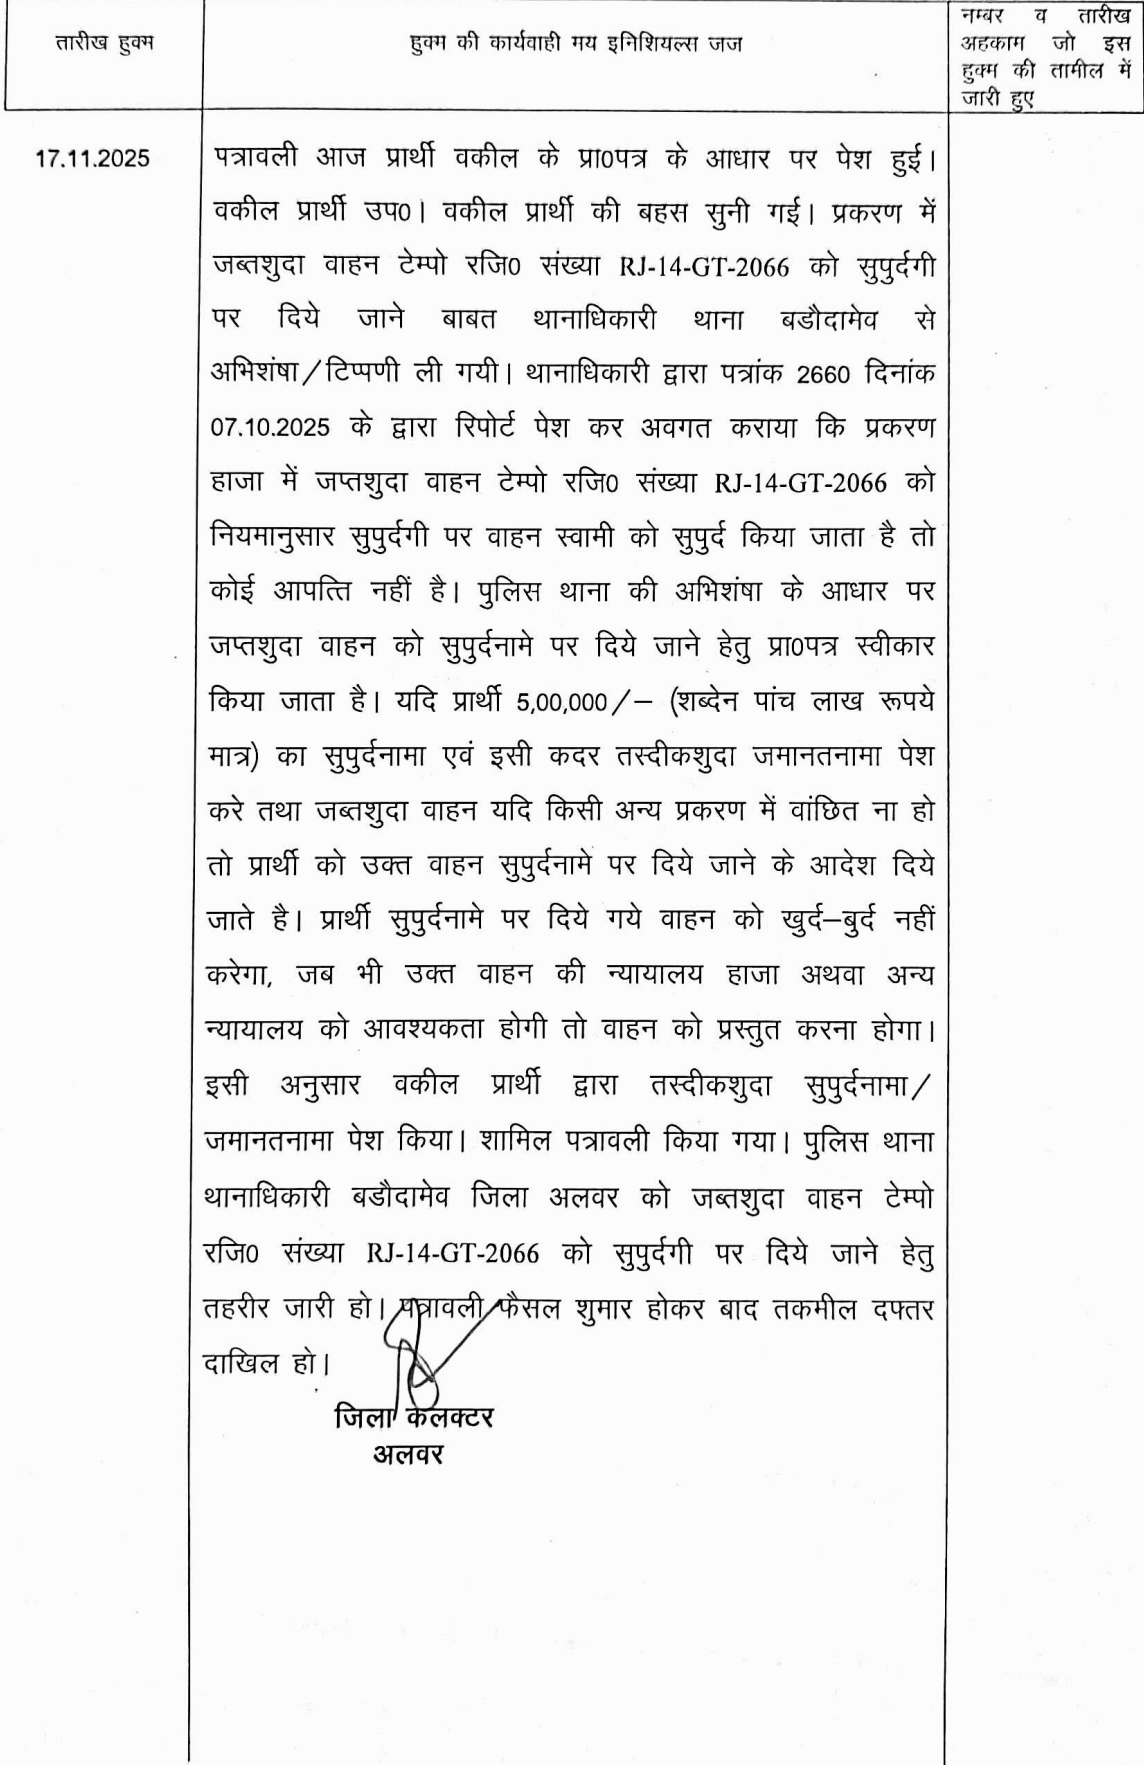 तारीख हुक्म
हुक्म की कार्यवाही मय इनिशियल्स जज
नम्बर व तारीख
अहकाम जो इस
हुक्म की तामील में
जारी हुए
17.11.2025
पत्रावली आज प्रार्थी वकील के प्रा0पत्र के आधार पर पेश हुई।
वकील प्रार्थी उप0। वकील प्रार्थी की बहस सुनी गई। प्रकरण में
जब्तशुदा वाहन टेम्पो रजि0 संख्या RJ-14-GT-2066 को सुपुर्दगी
पर दिये जाने बाबत थानाधिकारी थाना बडौदामेव से
अभिशंषा/टिप्पणी ली गयी। थानाधिकारी द्वारा पत्रांक 2660 दिनांक
07.10.2025 के द्वारा रिपोर्ट पेश कर अवगत कराया कि प्रकरण
हाजा में जप्तशुदा वाहन टेम्पो रजि0 संख्या RJ-14-GT-2066 को
नियमानुसार सुपुर्दगी पर वाहन स्वामी को सुपुर्द किया जाता है तो
कोई आपत्ति नहीं है। पुलिस थाना की अभिशंषा के आधार पर
जप्तशुदा वाहन को सुपुर्दनामे पर दिये जाने हेतु प्रा0पत्र स्वीकार
किया जाता है। यदि प्रार्थी 5,00,000/– (शब्देन पांच लाख रूपये
मात्र) का सुपुर्दनामा एवं इसी कदर तस्दीकशुदा जमानतनामा पेश
करे तथा जब्तशुदा वाहन यदि किसी अन्य प्रकरण में वांछित ना हो
तो प्रार्थी को उक्त वाहन सुपुर्दनामे पर दिये जाने के आदेश दिये
जाते है। प्रार्थी सुपुर्दनामे पर दिये गये वाहन को खुर्द–बुर्द नहीं
करेगा, जब भी उक्त वाहन की न्यायालय हाजा अथवा अन्य
न्यायालय को आवश्यकता होगी तो वाहन को प्रस्तुत करना होगा।
इसी अनुसार वकील प्रार्थी द्वारा तस्दीकशुदा सुपुर्दनामा/
जमानतनामा पेश किया। शामिल पत्रावली किया गया। पुलिस थाना
थानाधिकारी बडौदामेव जिला अलवर को जब्तशुदा वाहन टेम्पो
रजि0 संख्या RJ-14-GT-2066 को सुपुर्दगी पर दिये जाने हेतु
तहरीर जारी हो। पत्रावली फैसल शुमार होकर बाद तकमील दफ्तर
दाखिल हो।
जिला कलक्टर
अलवर